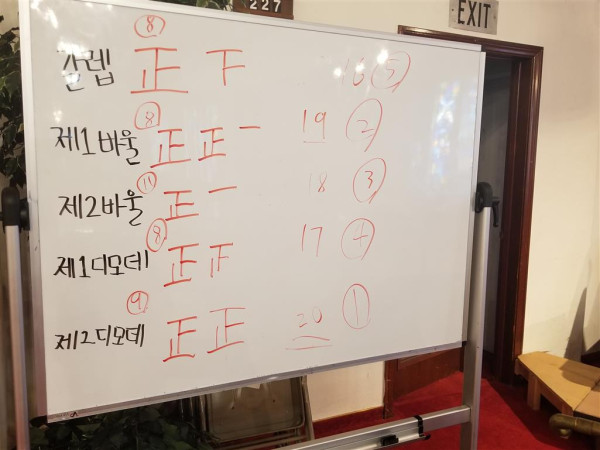 227
EXIT
⑧
갈렙 正 下 16 ⑤
⑧
제1바울 正 正 一 19 ②
⑪
제2바울 正 一 18 ③
⑧
제1디모데 正 正 17 ④
⑨
제2디모데 正 正 20 ①